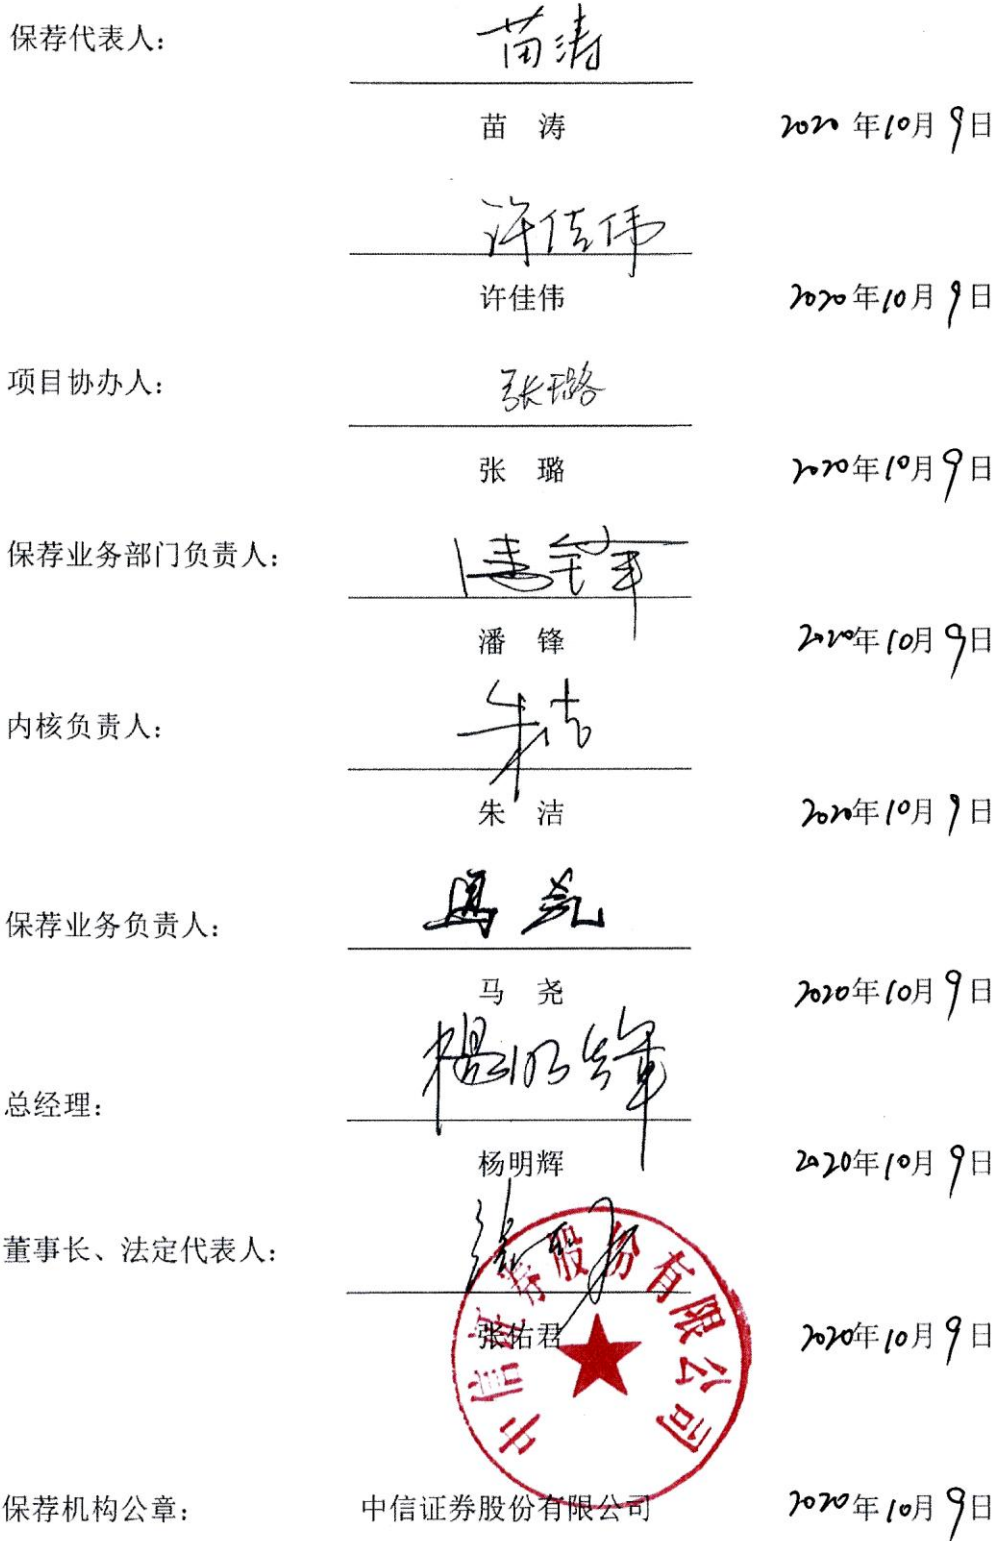 保荐代表人：
苗涛
苗 涛 2020年10月9日
许佳伟
许佳伟 2020年10月9日
项目协办人：
张璐
张 璐 2020年10月9日
保荐业务部门负责人：
潘锋
潘 锋 2020年10月9日
内核负责人：
朱洁
朱 洁 2020年10月9日
保荐业务负责人：
马尧
马 尧 2020年10月9日
总经理：
杨明辉
杨明辉 2020年10月9日
董事长、法定代表人：
张佑君 2020年10月9日
中信证券股份有限公司
保荐机构公章： 中信证券股份有限公司 2020年10月9日